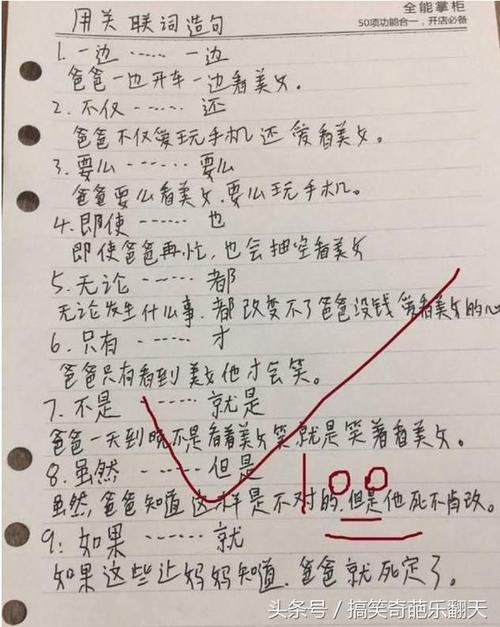 全能掌柜
50项功能合一，开店必备
用关联词造句
1. 一边 …… 一边
爸爸一边开车一边看美女。
2. 不仅 …… 还
爸爸不仅爱玩手机还爱看美女。
3. 要么 …… 要么
爸爸要么看美女，要么玩手机。
4. 即使 …… 也
即使爸爸再忙，也会抽空看美女
5. 无论 …… 都
无论发生什么事，都改变不了爸爸没钱爱看美女的心
6. 只有 …… 才
爸爸只有看到美女他才会笑。
7. 不是 …… 就是
爸爸一天到晚不是看着美女笑就是笑着看美女。
8. 虽然 …… 但是
100
虽然，爸爸知道这样是不对的，但是他死不肯改。
9: 如果 …… 就
如果这些让妈妈知道，爸爸就死定了。
头条号／搞笑奇葩乐翻天